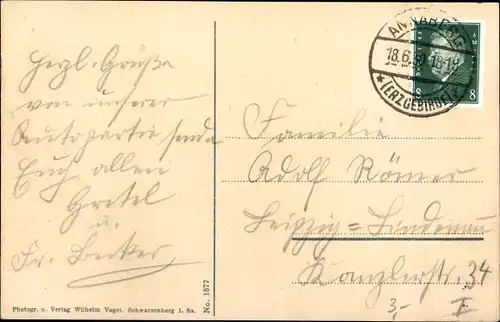 Herzl. Grüße
von unserer
Autopartie sendet
Euch allen
Gretel
u.
Fr. Becker
ANNABERG
18.6.30.18-19
* (ERZGEBIRGE)
8
8
Familie
Adolf Römer
Leipzig=Lindenau
Kanzlerstr. 34
3,-
I
Photogr. u. Verlag Wilhelm Vogel, Schwarzenberg i. Sa.
No. 1877